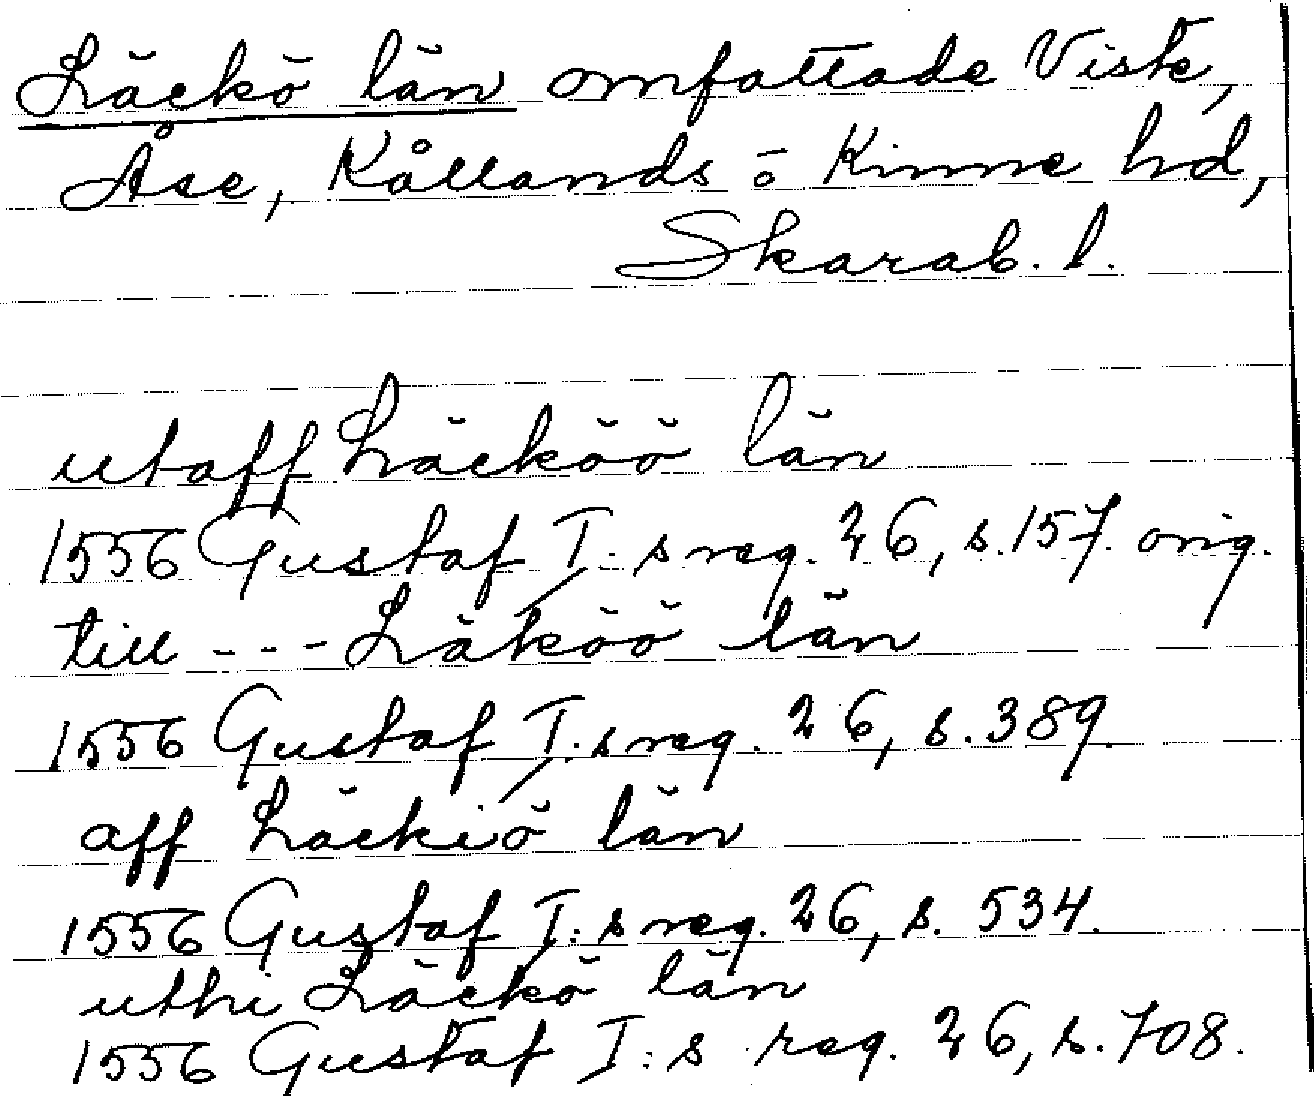 Läckö län omfattade Viste,
Åse, Kållands o Kinne hd,
Skarab. l.
utaff Läcköö län
1556 Gustaf I:s reg. 26, s. 157 orig.
till --- Läköö län
1556 Gustaf I:s reg. 26, s. 389.
aff Läckiö län
1556 Gustaf I:s reg. 26, s. 534.
uthi Läckö län
1556 Gustaf I:s reg. 26, s. 708.